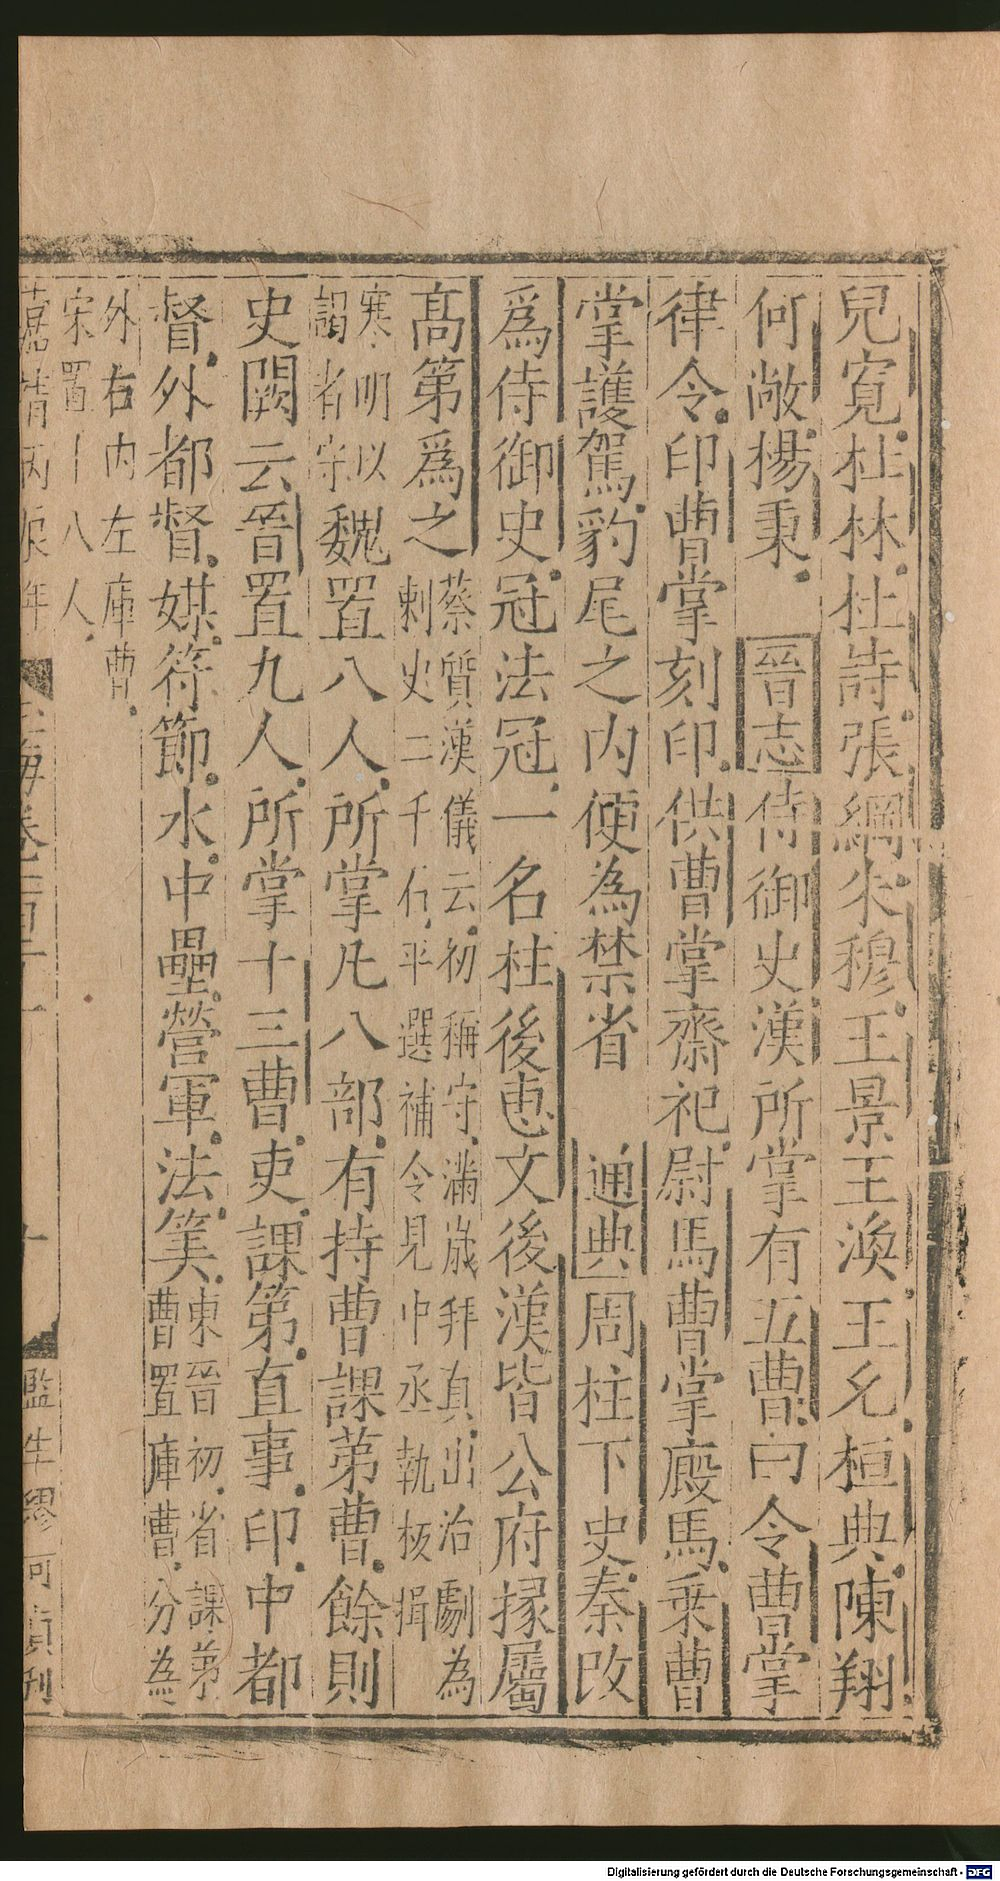 兒寛杜林杜詩張綱朱穆王景王渙王允桓典陳翔
何敞楊秉　晉志侍御史漢所掌有五曹曰令曹掌
律令印曹掌刻印供曹掌齋祀尉馬曹掌廄馬乘曹
掌護駕豹尾之内便為禁省　通典周柱下史秦改
爲侍御史冠法冠一名柱後惠文後漢皆公府掾屬
髙第爲之
蔡質漢儀云初稱守滿歳拜真出治劇為
刺史二千石平選補令見中丞執板揖
寒朗以
謁者守
魏置八人所掌凡八部有持曹課第曹餘則
史闕云晉置九人所掌十三曹吏課第直事印中都
督外都督媒符節水中壘營軍法筭
東晉初省課第
曹置庫曹分為
外右内左庫曹
宋置十八人
嘉靖丙辰年
玉海卷一百二十一
十
監生繆可貞刋
Digitalisierung gefördert durch die Deutsche Forschungsgemeinschaft - DFG